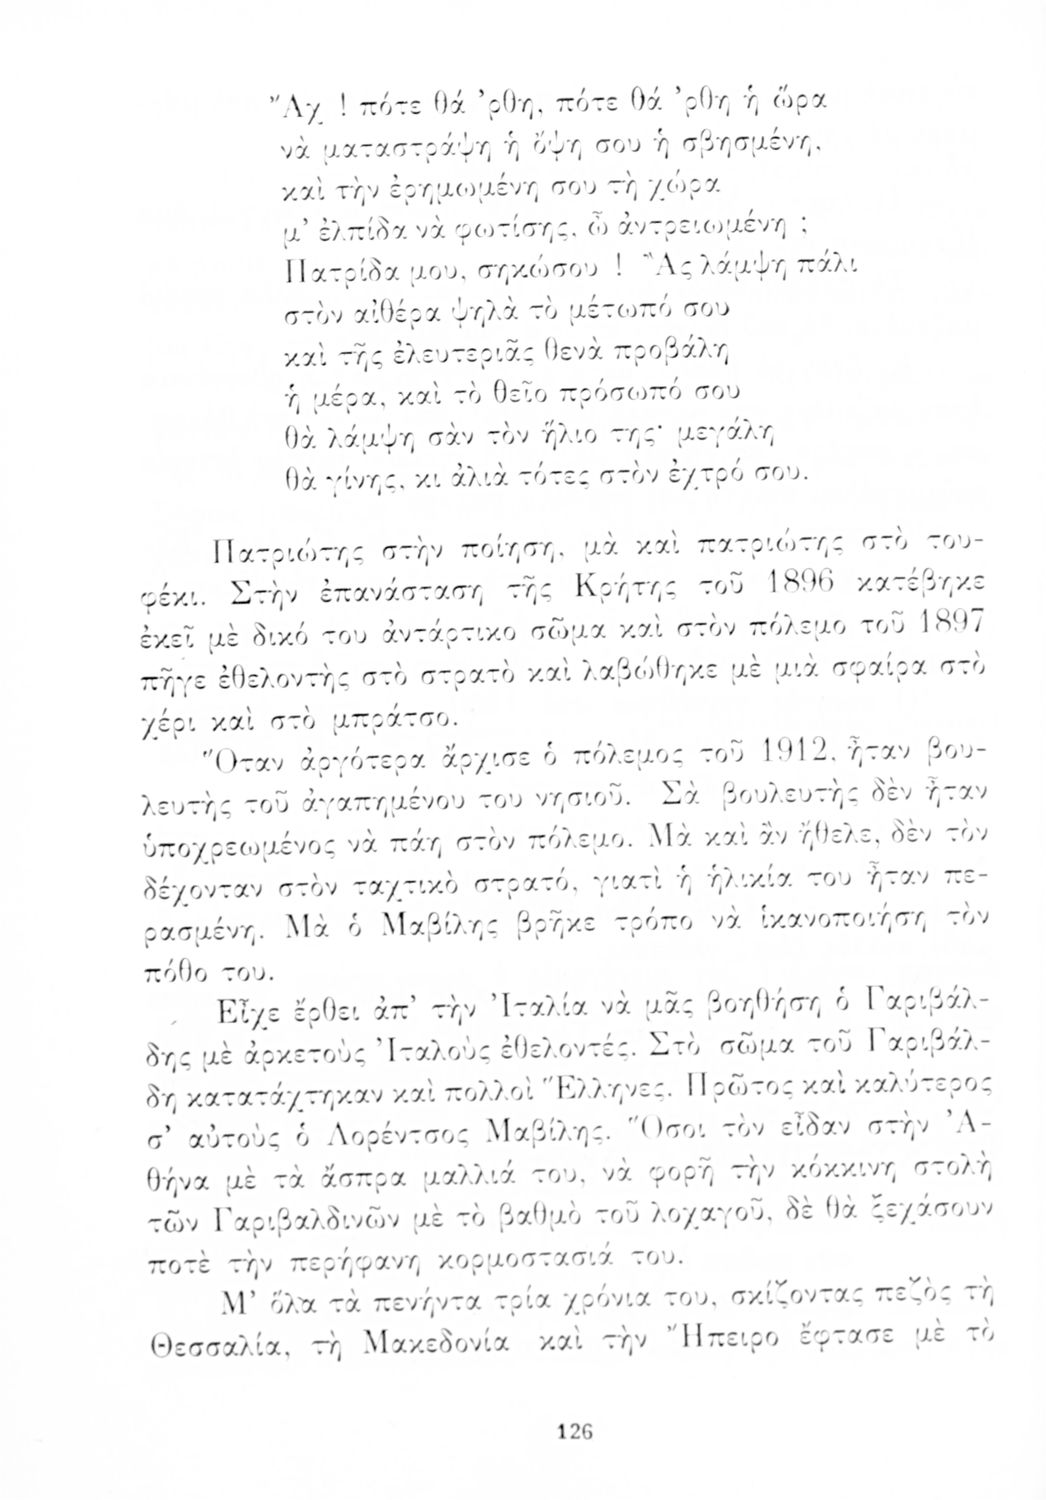 Ἄχ ! πότε θά ’ρθη, πότε θά ’ρθη ἡ ὥρα
νὰ ματαστράψη ἡ ὄψη σου ἡ σβησμένη,
καὶ τὴν ἐρημωμένη σου τὴ χώρα
μ’ ἐλπίδα νὰ φωτίσης, ὦ ἀντρειωμένη ;
Πατρίδα μου, σηκώσου ! Ἂς λάμψη πάλι
στὸν αἰθέρα ψηλὰ τὸ μέτωπό σου
καὶ τῆς ἐλευτεριᾶς θενὰ προβάλη
ἡ μέρα, καὶ τὸ θεῖο πρόσωπό σου
θὰ λάμψη σὰν τὸν ἥλιο της· μεγάλη
θὰ γίνης, κι ἀλιὰ τότες στὸν ἐχτρό σου.
Πατριώτης στὴν ποίηση, μὰ καὶ πατριώτης στὸ του-
φέκι. Στὴν ἐπανάσταση τῆς Κρήτης τοῦ 1896 κατέβηκε
ἐκεῖ μὲ δικό του ἀντάρτικο σῶμα καὶ στὸν πόλεμο τοῦ 1897
πῆγε ἐθελοντὴς στὸ στρατὸ καὶ λαβώθηκε μὲ μιὰ σφαίρα στὸ
χέρι καὶ στὸ μπράτσο.
Ὅταν ἀργότερα ἄρχισε ὁ πόλεμος τοῦ 1912, ἦταν βου-
λευτὴς τοῦ ἀγαπημένου του νησιοῦ. Σὰ βουλευτὴς δὲν ἦταν
ὑποχρεωμένος νὰ πάη στὸν πόλεμο. Μὰ καὶ ἂν ἤθελε, δὲν τὸν
δέχονταν στὸν ταχτικὸ στρατό, γιατὶ ἡ ἡλικία του ἦταν πε-
ρασμένη. Μὰ ὁ Μαβίλης βρῆκε τρόπο νὰ ἱκανοποιήση τὸν
πόθο του.
Εἶχε ἔρθει ἀπ’ τὴν Ἰταλία νὰ μᾶς βοηθήση ὁ Γαριβάλ-
δης μὲ ἀρκετοὺς Ἰταλοὺς ἐθελοντές. Στὸ σῶμα τοῦ Γαριβάλ-
δη κατατάχτηκαν καὶ πολλοὶ Ἕλληνες. Πρῶτος καὶ καλύτερος
σ’ αὐτοὺς ὁ Λορέντσος Μαβίλης. Ὅσοι τὸν εἶδαν στὴν Ἀ-
θήνα μὲ τὰ ἄσπρα μαλλιά του, νὰ φορῆ τὴν κόκκινη στολὴ
τῶν Γαριβαλδινῶν μὲ τὸ βαθμὸ τοῦ λοχαγοῦ, δὲ θὰ ξεχάσουν
ποτὲ τὴν περήφανη κορμοστασιά του.
Μ’ ὅλα τὰ πενήντα τρία χρόνια του, σκίζοντας πεζὸς τὴ
Θεσσαλία, τὴ Μακεδονία καὶ τὴν Ἤπειρο ἔφτασε μὲ τὸ
126